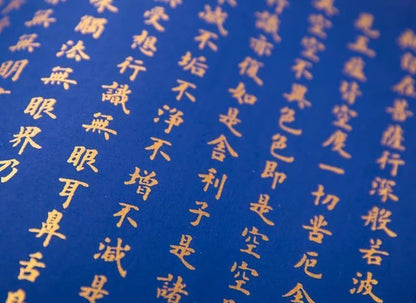 薩行深般若波
見五蘊皆空度一切苦厄舍
空空不異色色即是空空
識亦復如是舍利子是諸
滅不垢不淨不增不減是
受想行識無眼耳鼻舌
觸法無眼界乃
無明